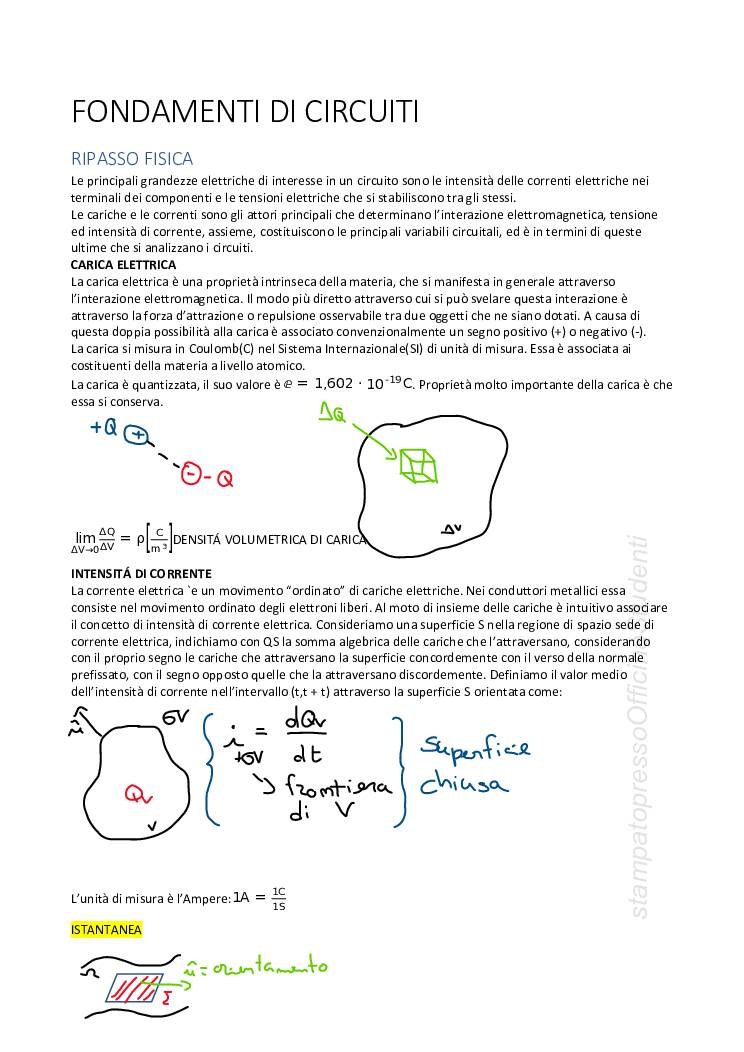 FONDAMENTI DI CIRCUITI
RIPASSO FISICA
Le principali grandezze elettriche di interesse in un circuito sono le intensità delle correnti elettriche nei
terminali dei componenti e le tensioni elettriche che si stabiliscono tra gli stessi.
Le cariche e le correnti sono gli attori principali che determinano l'interazione elettromagnetica, tensione
ed intensità di corrente, assieme, costituiscono le principali variabili circuitali, ed è in termini di queste
ultime che si analizzano i circuiti.
CARICA ELETTRICA
La carica elettrica è una proprietà intrinseca della materia, che si manifesta in generale attraverso
l'interazione elettromagnetica. Il modo più diretto attraverso cui si può svelare questa interazione è
attraverso la forza d'attrazione o repulsione osservabile tra due oggetti che ne siano dotati. A causa di
questa doppia possibilità alla carica è associato convenzionalmente un segno positivo (+) o negativo (-).
La carica si misura in Coulomb(C) nel Sistema Internazionale(SI) di unità di misura. Essa è associata ai
costituenti della materia a livello atomico.
La carica è quantizzata, il suo valore è ℯ = 1,602 · 10⁻¹⁹C. Proprietà molto importante della carica è che
essa si conserva.
ΔQ
+Q +
- -Q
ΔV
lim ΔV→0 ΔQ/ΔV = ρ[C/m³]DENSITÁ VOLUMETRICA DI CARICA
INTENSITÁ DI CORRENTE
La corrente elettrica `e un movimento "ordinato" di cariche elettriche. Nei conduttori metallici essa
consiste nel movimento ordinato degli elettroni liberi. Al moto di insieme delle cariche è intuitivo associare
il concetto di intensità di corrente elettrica. Consideriamo una superficie S nella regione di spazio sede di
corrente elettrica, indichiamo con QS la somma algebrica delle cariche che l'attraversano, considerando
con il proprio segno le cariche che attraversano la superficie concordemente con il verso della normale
prefissato, con il segno opposto quelle che la attraversano discordemente. Definiamo il valor medio
dell'intensità di corrente nell'intervallo (t,t + t) attraverso la superficie S orientata come:
i = dQv/dt
Qv
V
frontiera
di V
Superficie
chiusa
L'unità di misura è l'Ampere: 1A = 1C/1S
ISTANTANEA
n̂ = orientamento
Σ
stampatopressoOfficineStudenti